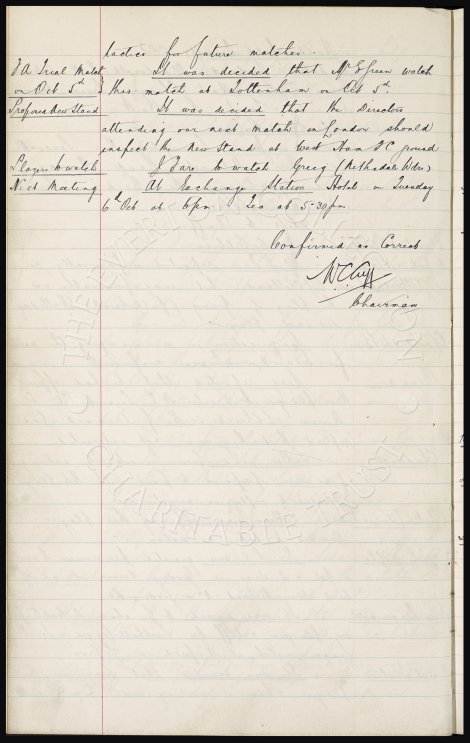 tactics for future matches.
F A Trial Match
on Oct 5th
It was decided that Mr E Green watch
this match at Tottenham on Oct 5th.
Proposed New Stand
It was decided that the Directors
attending our next match in London should
inspect the New Stand at West Ham F C ground
Players to watch
J Fare to watch Greig (Nithsdale Wdrs)
Next Meeting
At Exchange Station Hotel on Tuesday
6th Oct at 6pm. Tea at 5-30pm
Confirmed as Correct
W.C. Cuff
Chairman
THE EVERTON COLLECTION
CHARITABLE TRUST